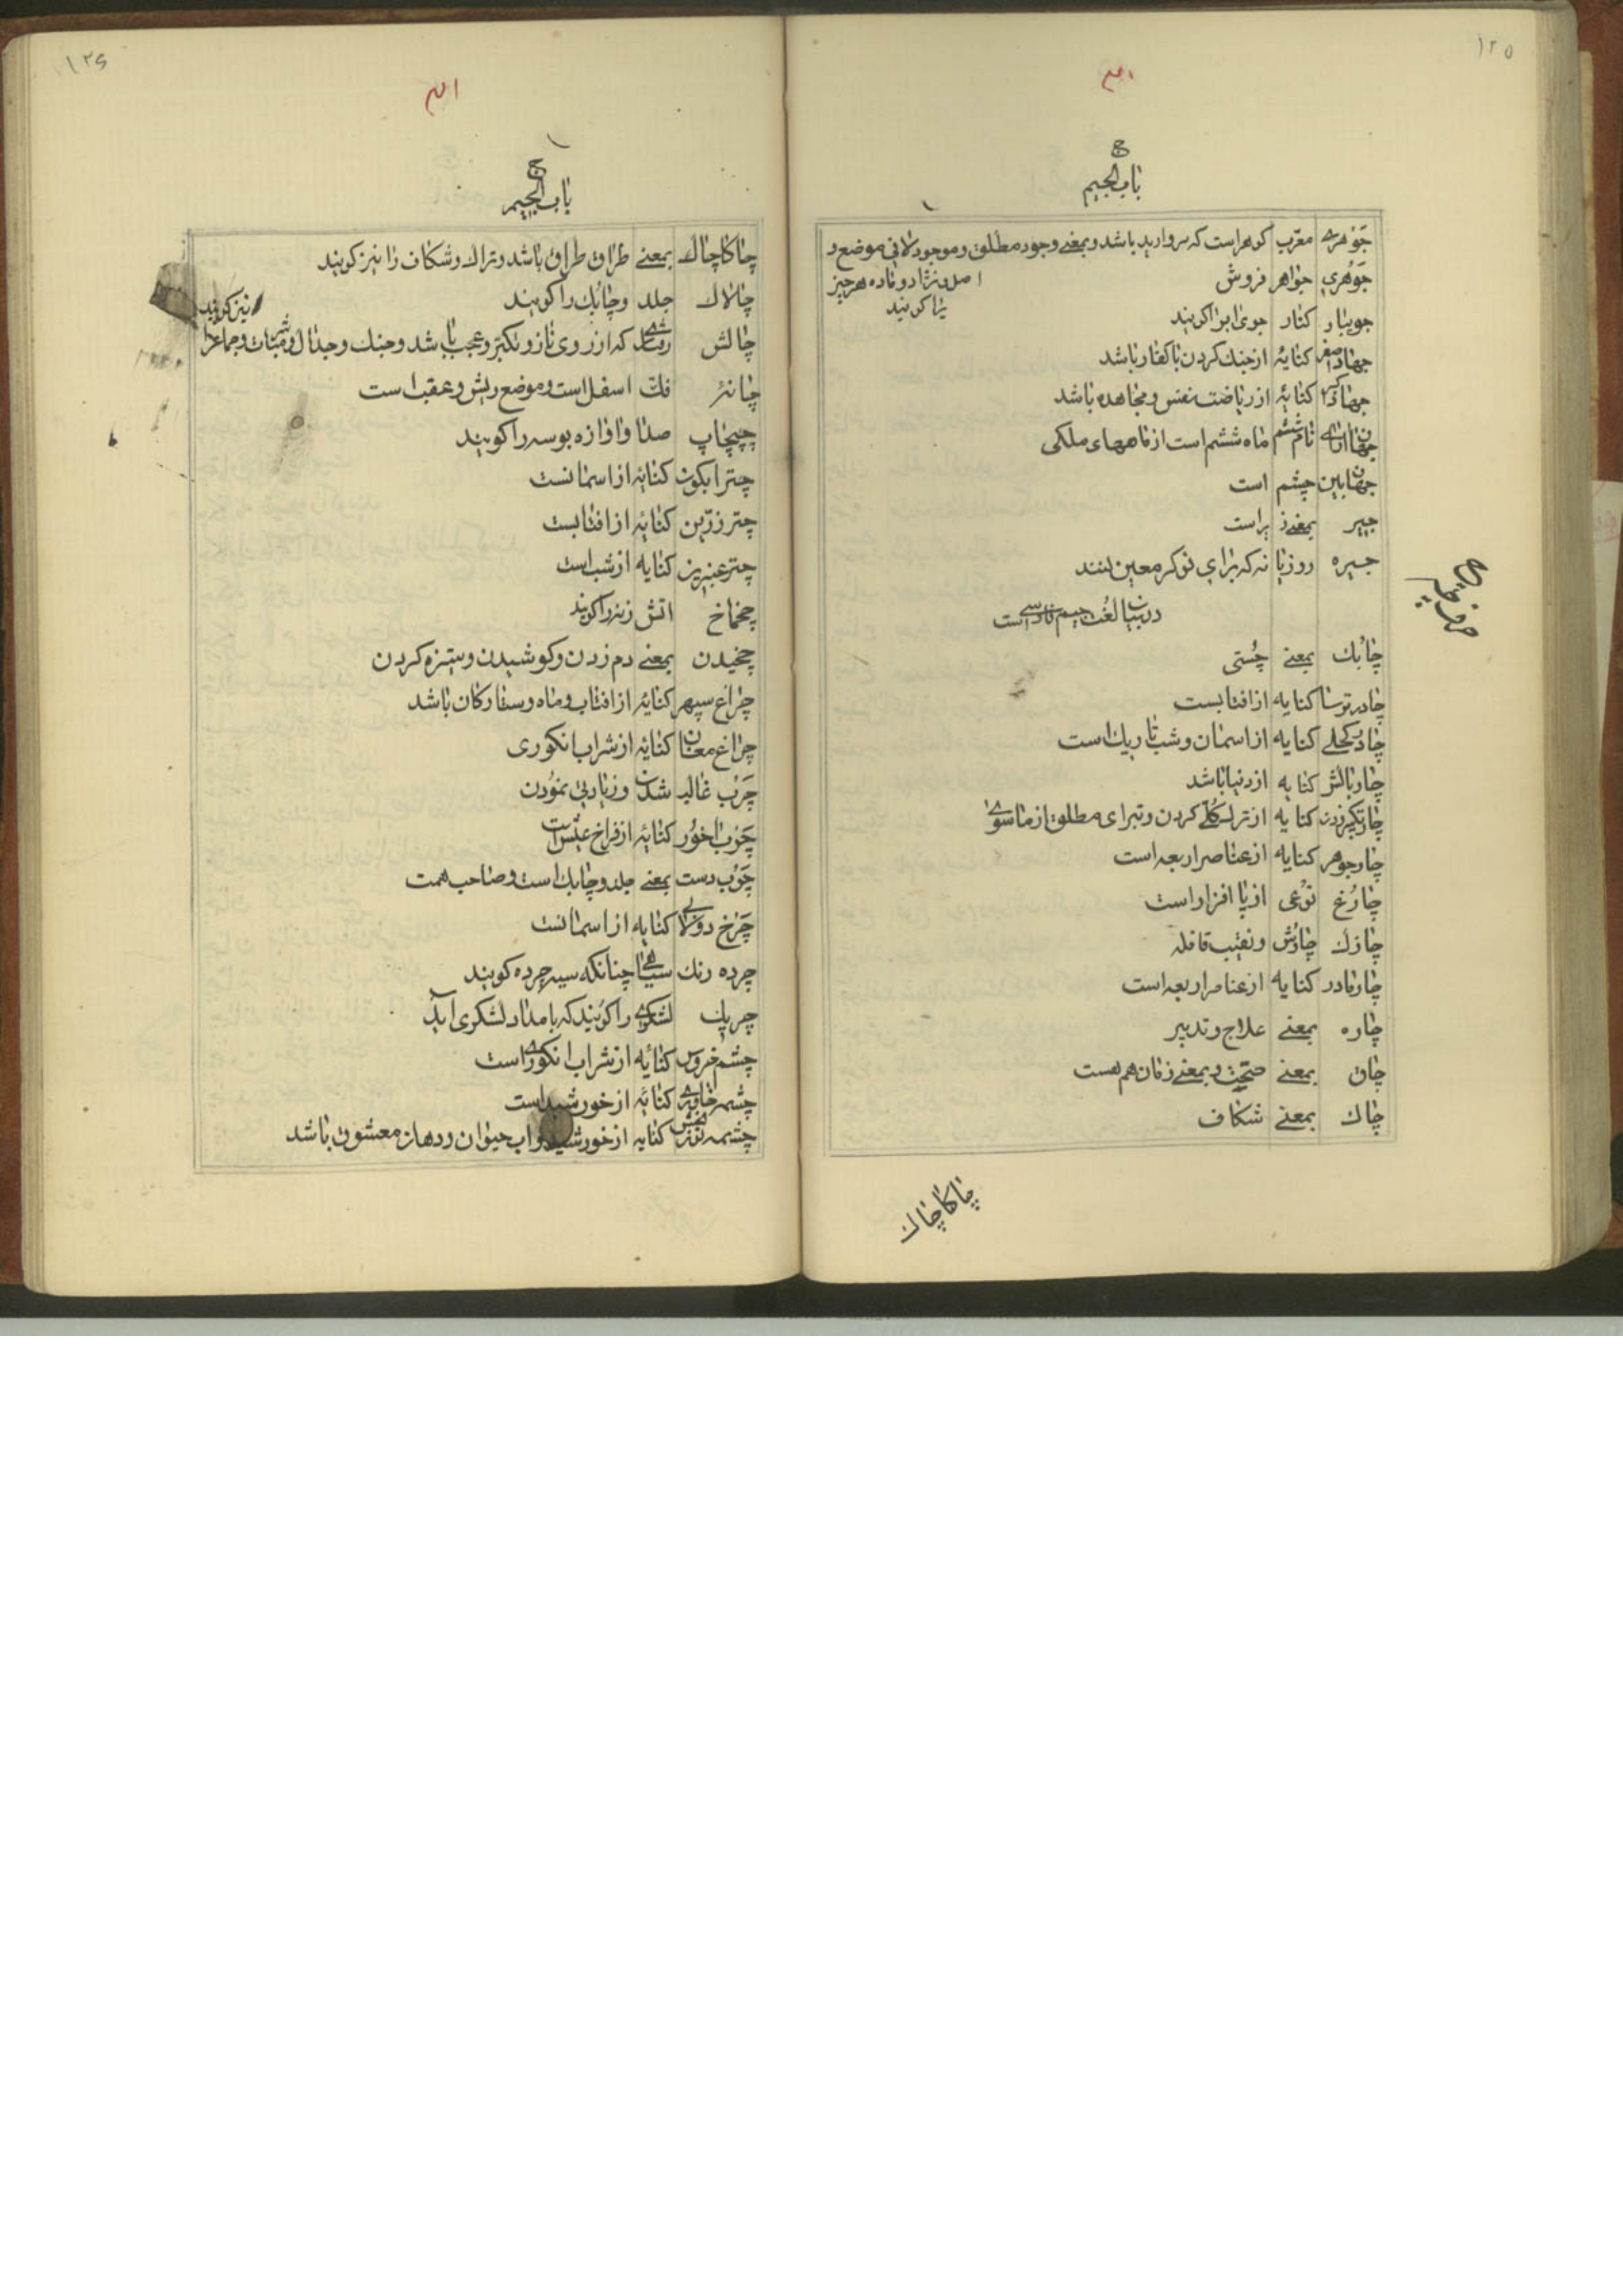 ١٢٥
ج
باب الجیم
جَوهری معرّب کوهر است که مروارید باشد و بمعنی وجود مطلق و موجود لا فی موضع و
اصل و نژاد و ماده هر چیز
را کویند
جَوُهری جواهر فروش
جویبار کنار جوی ابرا کویند
جهاد اصغر کنایهٔ از جنك کردن با کفار باشد
جهاد اکبر کنایهٔ از ریاضت نفس و مجاهده باشد
جهان ارای نام ششم ماه ششم است از ماههای ملکی
جهان بین چشم است
جیر بمعنی زیر است
جیره روزیانه که برای نوکر معین کنند
در بیان لغت جیم فارسی است
چابُك بمعنی چُستی
چادر ترسا کنایه از افتابست
چادر کحلی کنایه از اسمان و شب تاریك است
چاربالش کنایه از دنیا باشد
چار تکبیر زدن کنایه از ترك کلّی کردن و تبرای مطلق از ماسوی
چارجوهر کنایه از عناصر اربعه است
چارُغ نوعی از پا افزار است
چازك چاوُش و نقیب قافله
چارمادر کنایه از عناصر اربعه است
چاره بمعنی علاج و تدبیر
چاق بمعنی صحّت و بمعنی زمان هم هست
چاك بمعنی شکاف
چاکاچاك
١٢٦
ج
باب الجیم
چاکاچاك بمعنی طراق طراق باشد و تراك و شکاف را نیز کویند
چالاك جلد و چابُك را کویند
نیز کویند
چالش رفتاری که از روی ناز و تکبّر و عجب باشد و جنك و جدال و مباشرت و جماع را
چانهٔ فكّ اسفل است و موضع ریش و عقب است
چپچاپ صدا و اوازه بوسه را کویند
چتر ابکون کنایهٔ از اسمانست
چتر زرّین کنایهٔ از افتابست
چتر عنبرین کنایه از شب است
چخماخ اتش زنه را کویند
چخیدن بمعنی دم زدن و کوشیدن و ستیزه کردن
چراغ سپهر کنایهٔ از افتاب و ماه و ستارکان باشد
چراغ مغان کنایهٔ از شراب انکوری
چَرْب غالب شدن و زیادتی نمودن
چَرب اخوُر کنایهٔ از فراخ عیشی است
چَرْب دست بمعنی جلد و چابك است و صاحب همت
چَرْخ دولابی کنایه از اسمانست
چرده رنك سیاهی چنانکه سیه چرده کویند
چریك لشکری را کویند که بامداد لشکری اید
چشم خروس کنایهٔ از شراب انکوری است
چشمه خاوری کنایهٔ از خورشید است
چشمه نوربخش کنایه از خورشید و اب حیوان و دهان معشوق باشد